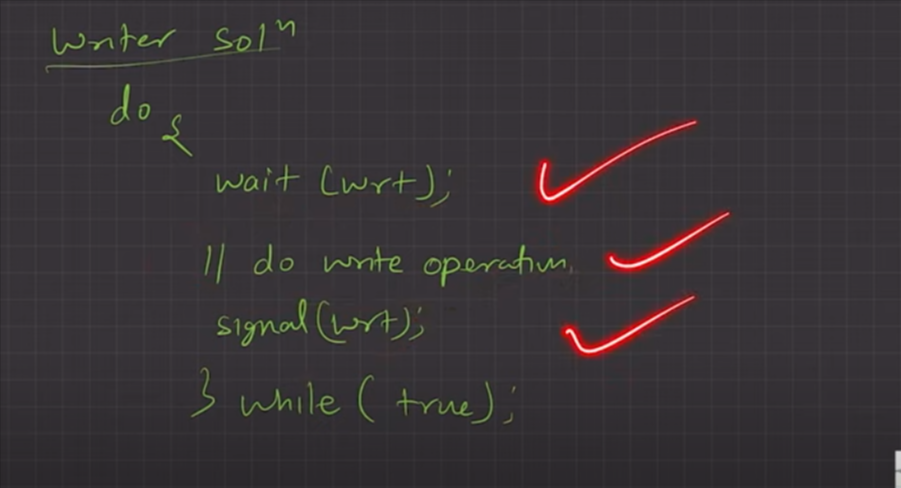 Writer solⁿ
do {
wait (wrt);
// do write operation.
signal(wrt);
} while ( true);